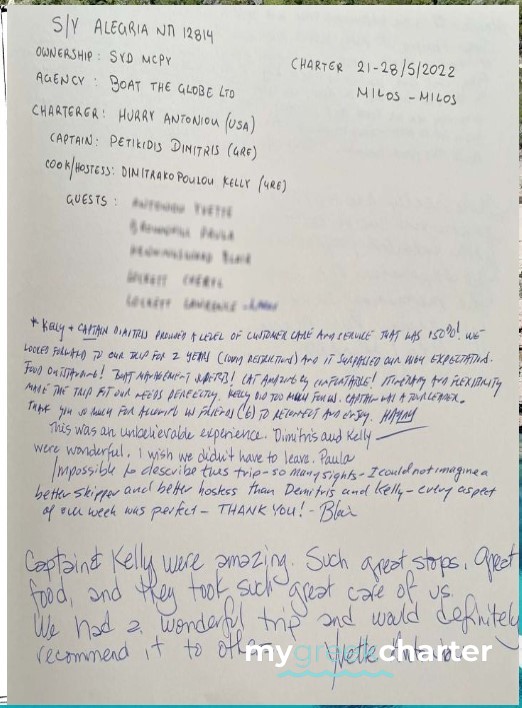 S/Y ALEGRIA NΠ 12814
OWNERSHIP: SYD MCPY
AGENCY: BOAT THE GLOBE LTD
CHARTERER: HURRY ANTONIOU (USA)
CAPTAIN: PETIKIDIS DIMITRIS (GRE)
COOK/HOSTESS: DIMITRAKOPOULOU KELLY (GRE)
GUESTS:
CHARTER 21-28/5/2022
MILOS - MILOS
* KELLY + CAPTAIN DIMITRIS PROVIDED A LEVEL OF CUSTOMER CARE AND SERVICE THAT WAS 150%! WE
LOOKED FORWARD TO OUR TRIP FOR 2 YEARS (COVID RESTRICTIONS) AND IT SURPASSED OUR HIGH EXPECTATION.
FOOD OUTSTANDING! BOAT MANAGEMENT SUPERB! CAT AMAZINGLY COMFORTABLE! ITINERARY AND FLEXIBILITY
MADE THE TRIP FIT OUR NEEDS PERFECTLY. KELLY DID TOO MUCH FOR US. CAPTAIN WAS A TOUR LEADER.
THANK YOU SO MUCH FOR ALLOWING US FRIENDS (6) TO RECONNECT AND ENJOY.
This was an unbelievable experience. Dimitris and Kelly
were wonderful. I wish we didn't have to leave. Paula
Impossible to describe this trip - so many sights - I could not imagine a
better skipper and better hostess than Demitris and Kelly - every aspect
of our week was perfect - THANK YOU! - Blair
Captain & Kelly were amazing. Such great stops, great
food, and they took such great care of us.
We had a wonderful trip and would definitely
recommend it to
Yvette
mygreekcharter